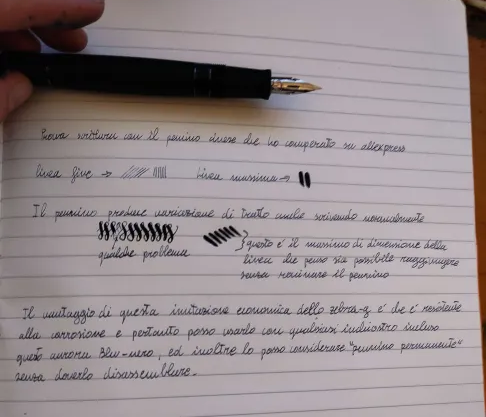 Prova scrittura con il pennino cinese che ho comperato su aliexpress
linea fine → linea massima →
Il pennino produce variazione di tratto anche scrivendo normalmente
qualche problema
questo è il massimo di dimensione della
linea che penso sia possibile raggiungere
senza rovinare il pennino
Il vantaggio di questa imitazione economica dello zebra-g è che è resistente
alla corrosione e pertanto posso usarlo con qualsiasi inchiostro incluso
questo aurora Blu-nero, ed inoltre lo posso considerare "pennino permanente"
senza doverlo disassemblare.